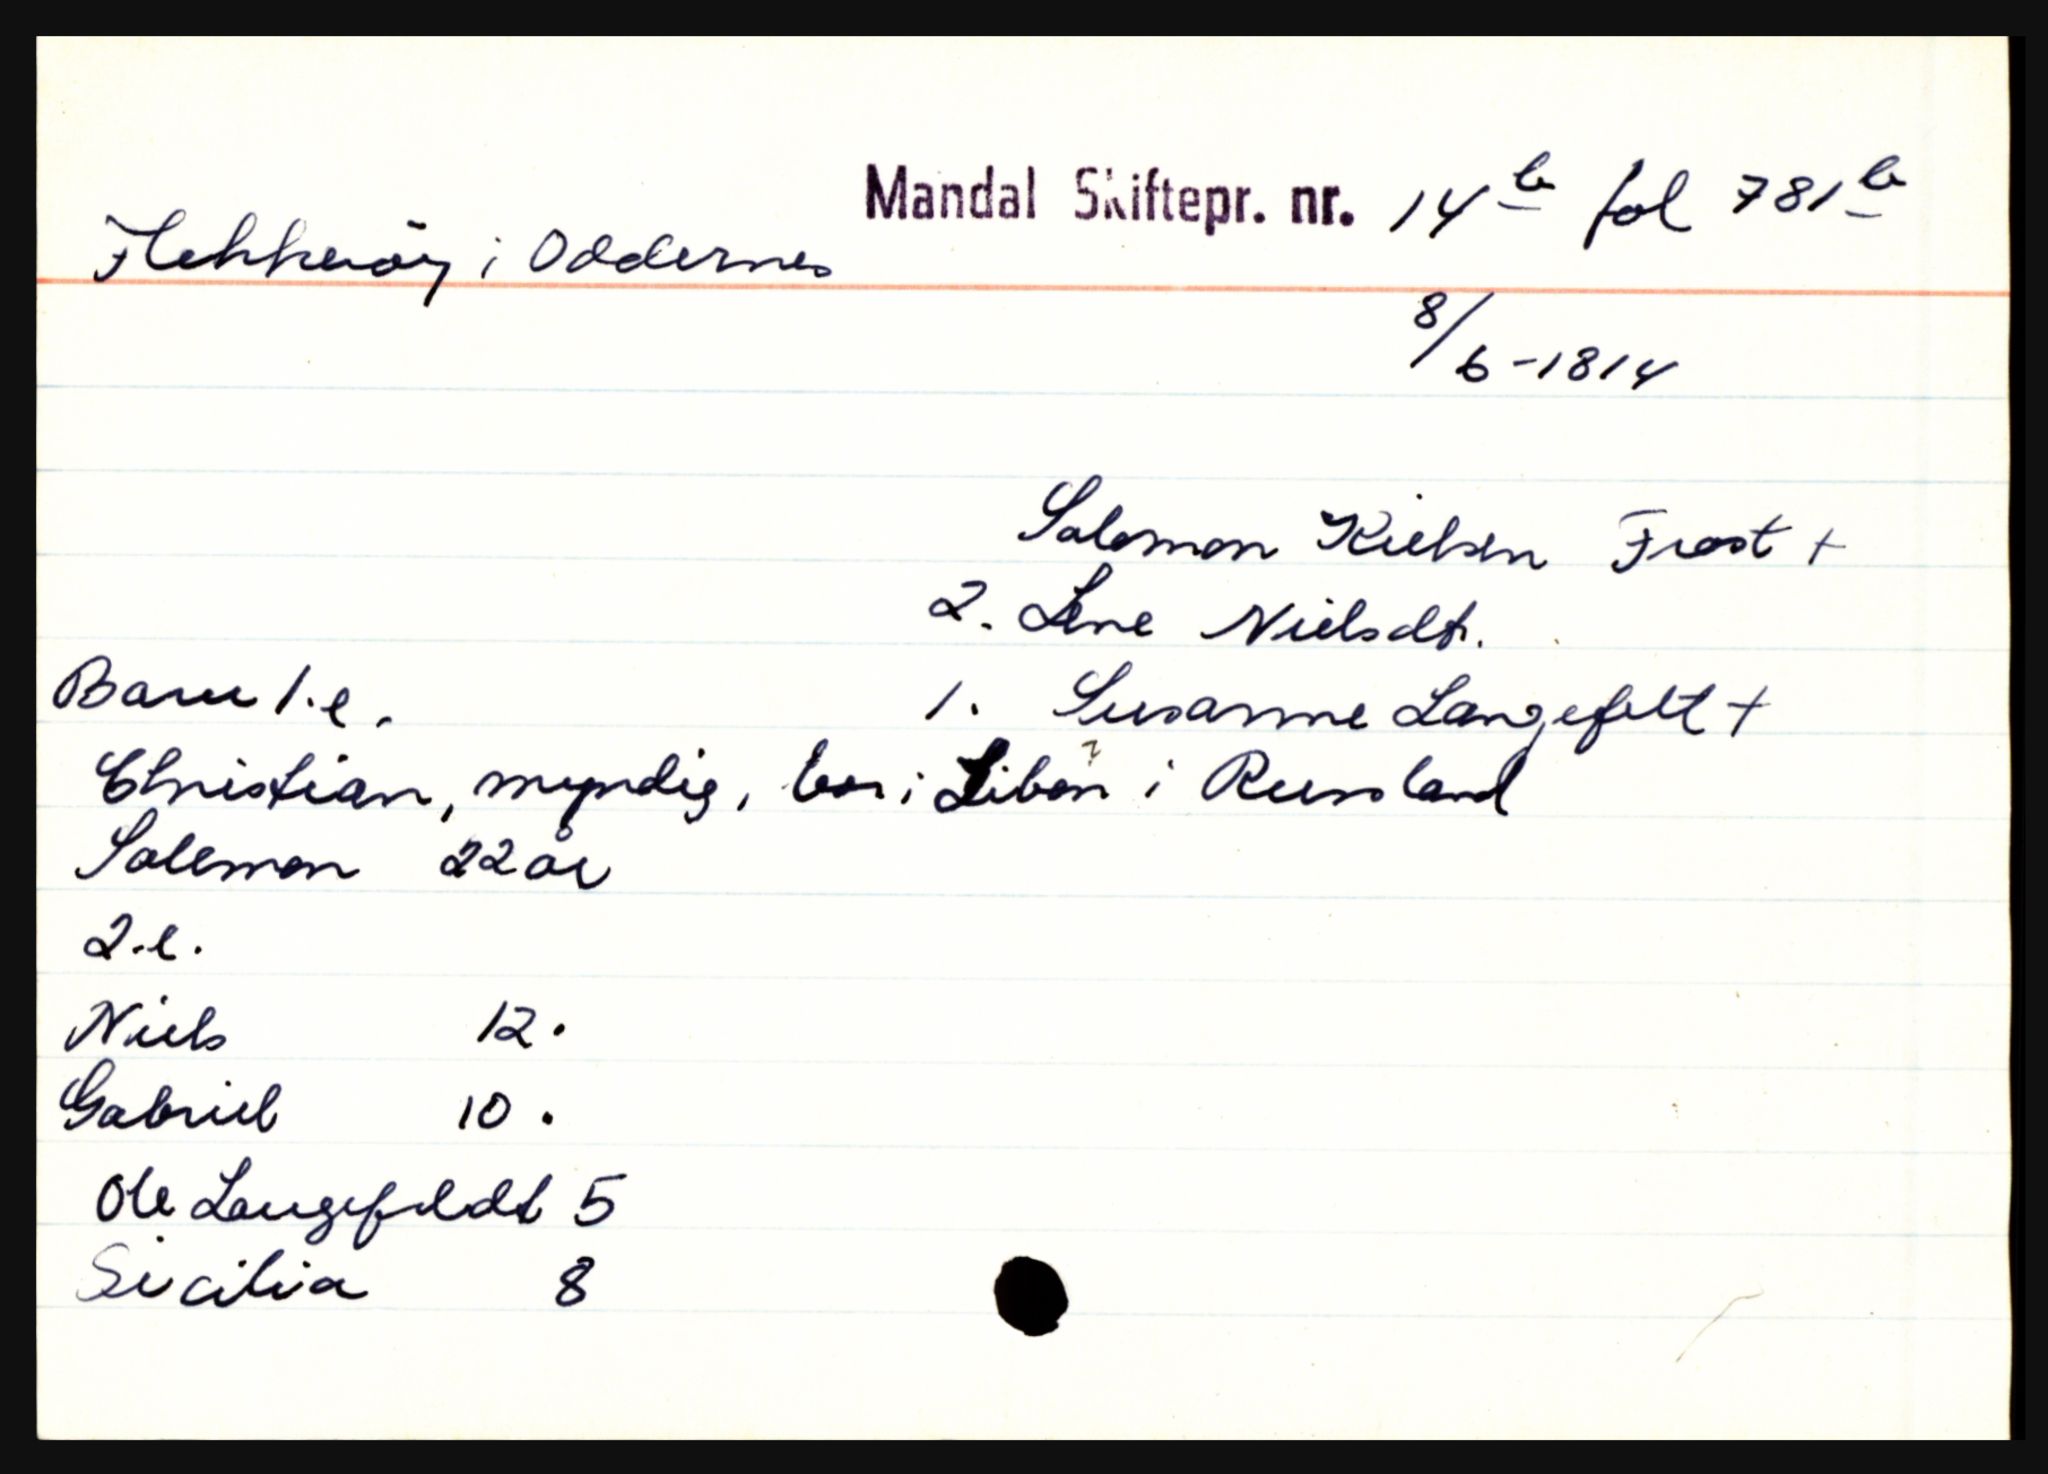 Mandal Skiftepr. nr. 14b fol 781b
Flekkerøy i Oddernes
8/6-1814
Salomon Kielsen Frost +
2. Lene Nielsdt.
Barn 1.e. 1. Susanne Langefelt +
Christian, myndig, bor i Libön i Russland
Salomon 22 år
2.e.
Niels 12.
Gabriel 10.
Ole Langefeldt 5
Sicilia 8